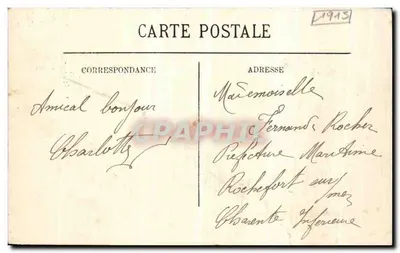 1915
CARTE POSTALE
CORRESPONDANCE
ADRESSE
Amical bonjour
Charlotte
Mademoiselle
Fernande Rocher
Préfecture Maritime
Rochefort sur
mer
Charente Inférieure